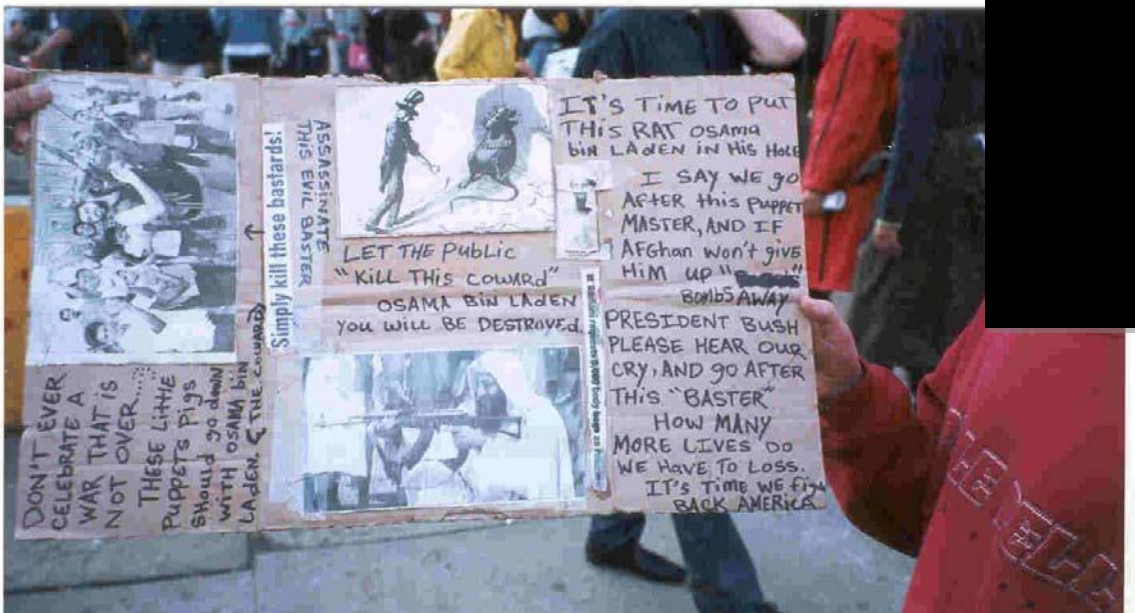 DON'T EVER
CELEBRATE A
WAR THAT IS
NOT OVER....
THESE LITTLE
PUPPETS PIGS
SHOULD go down
WITH OSAMA bin
LADEN. & THE COWARD
Simply kill these bastards!
ASSASSINATE
THIS EVIL BASTER
LET THE PUBLIC
"KILL THIS COWARD"
OSAMA BIN LADEN
YOU WILL BE DESTROYED.
IT'S TIME TO PUT
THIS RAT OSAMA
biN LADEN IN HIS HOLE
I SAY WE gO
AFTER this PUPPET
MASTER, AND IF
AFGhan WON'T giVE
HIM UP "
BOMBS AWAY
PRESIDENT BUSH
PLEASE HEAR OUR
CRY, AND gO AFTER
THIS "BASTER"
HOW MANY
MORE LIVES DO
WE HAVE TO LOSS.
IT'S TIME WE
BACK AMERICA